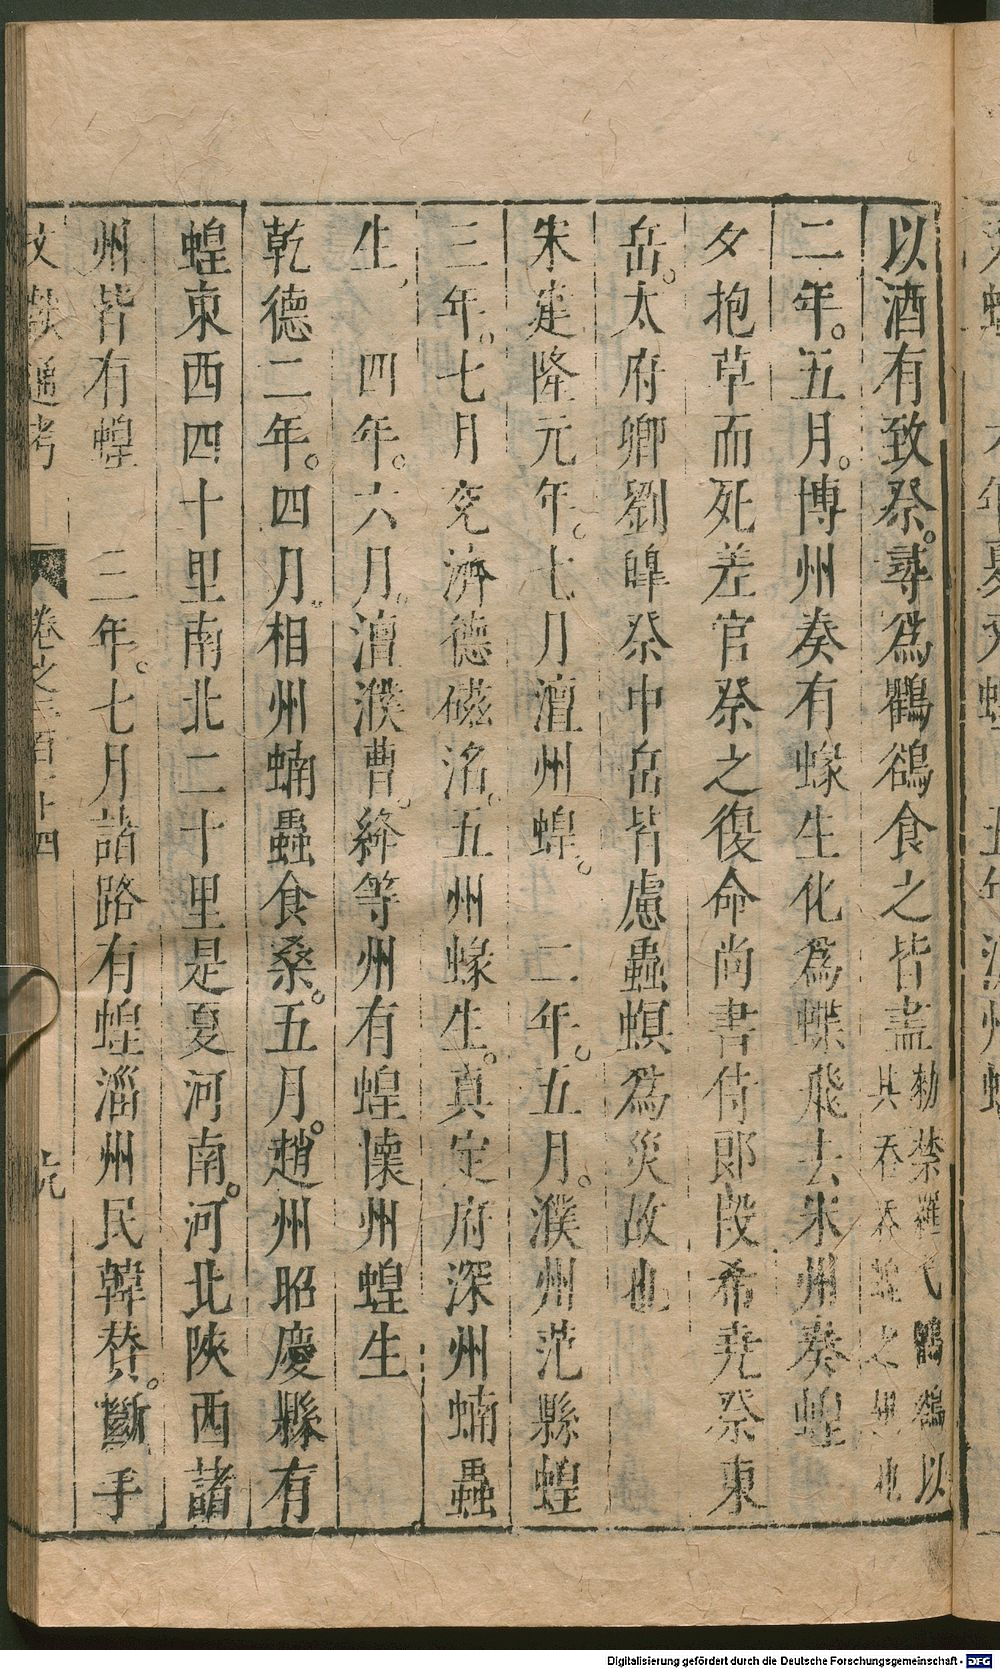 以酒有致祭。尋為鸜鵒食之皆盡勑禁羅弋鸜鵒以其吞蝗之異也
二年。五月。博州奏有蝝生化為蝶飛去宋州奏蝗
夕抱草而死差官祭之復命尚書侍郎段希堯祭東
岳。太府卿劉皥祭中岳皆慮蟲螟為災故也
宋建隆元年。七月澶州蝗。 二年。五月。濮州范縣蝗
三年。七月兗濟德磁洺。五州蝝生。真定府深州蝻蟲
生, 四年。六月。澶濮曹。絳等州有蝗懷州蝗生
乾德二年。四月。相州蝻蟲食桑。五月。趙州昭慶縣有
蝗東西四十里南北二十里是夏河南。河北陝西諸
州皆有蝗 三年。七月諸路有蝗淄州民韓贊。斷手
文獻通考 卷之三百十四
Digitalisierung gefördert durch die Deutsche Forschungsgemeinschaft - DFG